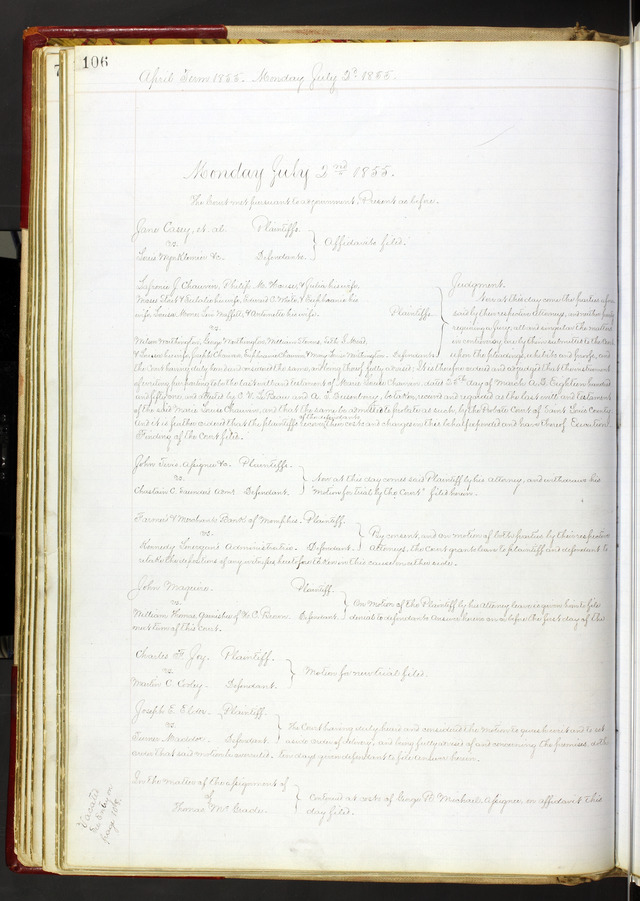 106
April Term 1855. Monday July 2d 1855.
Monday July 2nd 1855.
The Court met pursuant to adjournment. Present as before.
Jane Casey, et al. Plaintiffs.
vs.
Louis &c. Defendants. Affidavits filed.
Judgment.
Lafrenier J. Chauvin, Philip M. House, & Julia his wife,
Now at this day come the parties afore
wife, Louisa Moore, Levi Moffett, & Antoinette his wife. Plaintiffs.
said by their respective Attorneys, and neither party
vs.
requiring a jury, all and singular the matters
Nelson Worthington, George Worthington, William Stevens,
in controversy are by them submitted to the Court
Defendants.
upon the pleadings, exhibits and proofs, and
the Court having duly heard and considered the same, and being thereof fully advised: It is therefore ordered and adjudged that the instrument
of writing purporting to be the last will and testament of Marie Louise Chauvin dated 25th day of March A.D. Eighteen hundred
and fifty one, and attested by and be taken, received and regarded as the last will and testament
of the said Marie Louise Chauvin, and that the same be admitted to probate as such, by the Probate Court of Saint Louis County.
of the defendants
And it is further ordered that the plaintiffs recover their costs and charges in this behalf expended and have thereof Execution.
Finding of the Court filed.
John Assignee &c. Plaintiffs.
vs.
Now at this day comes said Plaintiff by his Attorney, and withdraws his
Defendant. Motion for trial by the Court filed herein.
Farmers & Merchants Bank of Memphis. Plaintiff.
vs.
By consent, and on motion of both parties by their respective
Administratrix. Defendant. Attorneys, the Court grants leave to plaintiff and defendant to
retake the depositions of any witnesses heretofore taken in this cause on either side.
John Maguire. Plaintiff.
vs.
On motion of the Plaintiff by his Attorney leave is given him to file
William Thomas, Garnishee of Defendant. denial to defendants answer herein on or before the first day of the
next term of this Court.
Charles F. Joy. Plaintiff.
vs.
Motion for new trial filed.
Martin C. Defendant.
Joseph E. Elder. Plaintiff.
vs.
The Court having duly heard and considered the motion to quash writ and to set
Defendant. aside order of delivery, and being fully advised of and concerning the premises, doth
order that said motion be overruled. Ten days given defendant to file Answer herein.
In the matter of the assignment of
of
Continued at costs of George R. Michael, Assignee, on affidavit this
Thomas
day filed.
Vacated
See Entry on
page